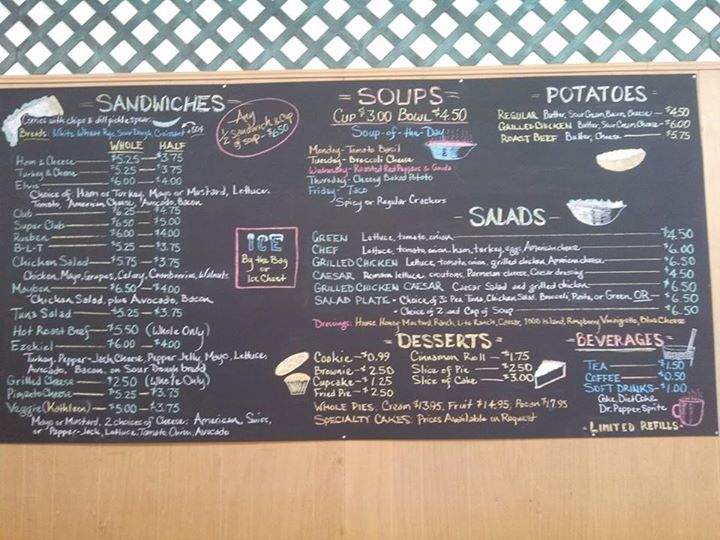 SANDWICHES
Comes with chips & dill pickle spear
Breads: White, Wheat, Rye, Sour Dough, Croissant + 50¢
WHOLE HALF
Ham & Cheese $5.25 $3.75
Turkey & Cheese $5.25 $3.75
Elvis $6.00 $4.00
Choice of Ham or Turkey, Mayo or Mustard, Lettuce,
Tomato, American Cheese, Avocado, Bacon
Club $6.25 $4.75
Super Club $6.50 $5.00
Rueben $6.00 $4.00
B-L-T $5.25 $3.75
Chicken Salad $5.75 $3.75
Chicken, Mayo, Grapes, Celery, Cranberries, Walnuts
$6.50 $4.00
Chicken Salad, plus Avocado, Bacon
Tuna Salad $5.25 $3.75
Hot Roast Beef $5.50 (Whole Only)
Ezekiel $6.00 $4.00
Turkey, Pepper-Jack Cheese, Pepper Jelly, Mayo, Lettuce,
Avocado, Bacon, on Sour Dough bread
Grilled Cheese $2.50 (Whole Only)
Pimento Cheese $5.25 $3.75
Veggie (Kathleen) $5.00 $3.75
Mayo or Mustard, 2 choices of Cheese: American, Swiss,
or Pepper-Jack, Lettuce, Tomato, Onion, Avocado
Any
1/2 Sandwich & Cup
of soup - $6.50
ICE
By the Bag
or
Ice Chest
SOUPS
CUP $3.00 BOWL $4.50
Soup-of-the-Day
Monday - Tomato Basil
Tuesday - Broccoli Cheese
Wednesday - Roasted Red Peppers & Gouda
Thursday - Cheesy Baked Potato
Friday - Taco
Spicy or Regular Crackers
POTATOES
REGULAR Butter, Sour Cream, Bacon, Cheese $4.50
GRILLED CHICKEN Butter, Sour Cream, Cheese $6.00
ROAST BEEF Butter, Cheese $5.75
SALADS
GREEN Lettuce, tomato, onion $4.50
CHEF Lettuce, tomato, onion, ham, turkey, egg, American cheese $6.00
GRILLED CHICKEN Lettuce, tomato, onion, grilled chicken, American cheese $6.50
CAESAR Romaine lettuce, croutons, Parmesan cheese, Caesar dressing $4.50
GRILLED CHICKEN CAESAR Caesar Salad and grilled chicken $6.50
SALAD PLATE - Choice of 3: Pea, Tuna, Chicken Salad, Broccoli, Pasta, or Green OR $6.50
Choice of 2 and Cup of Soup $6.50
Dressings: House, Honey Mustard, Ranch, Lite Ranch, Caesar, 1000 Island, Raspberry Vinaigrette, Blue Cheese
DESSERTS
Cookie - $0.99 Cinnamon Roll - $1.75
Brownie - $2.50 Slice of Pie - $2.50
Cupcake - $1.25 Slice of Cake - $3.00
Fried Pie - $2.50
WHOLE PIES: Cream $13.95, Fruit $14.95, Pecan $17.95
SPECIALTY CAKES: Prices Available on Request
BEVERAGES
TEA $1.50
COFFEE $0.50
SOFT DRINKS - $1.00
Coke, Diet Coke,
Dr. Pepper, Sprite
- LIMITED REFILLS -